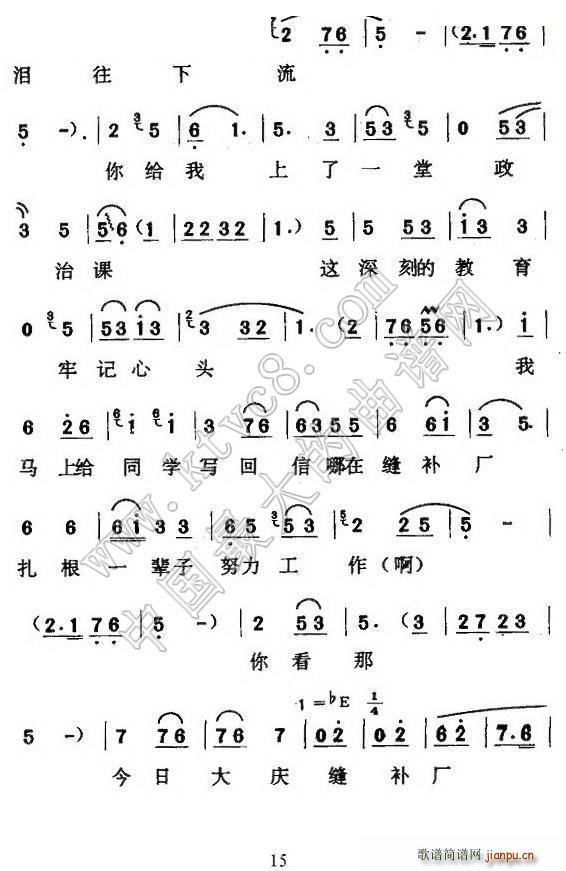 2 76 | 5 - | (2.1 76 |
泪 往 下 流
5 -). | 2 3 5 | 6 1. | 5. 3 | 53 3 5 | 0 53 |
你 给 我 上 了 一 堂 政
3 5 | 56 (1 | 22 32 | 1.) 5 | 5 53 | i3 3 |
治 课 这 深 刻 的 教 育
0 3 5 | 53 i3 | 2 3 32 | 1. (2 | 76 56 | 1.) i |
牢 记 心 头 我
6 26 | 6 i 6 i | 3 76 | 63 55 | 6 6i | 3 5. |
马 上 给 同 学 写 回 信 哪 在 缝 补 厂
6 6 | 6i 33 | 65 53 | 3 5 2 | 2 25 | 5 - |
扎 根 一 辈 子 努 力 工 作 (啊)
(2.1 76 | 5 -) | 2 53 | 5. (3 | 27 23 |
你 看 那
1=♭E 1/4
5 -) | 7 76 | 76 7 | 02 | 02 | 62 | 7.6 |
今 日 大 庆 缝 补 厂
www.ktvc8.com
中国最大的曲谱网
15
歌谱简谱网
jianpu.cn